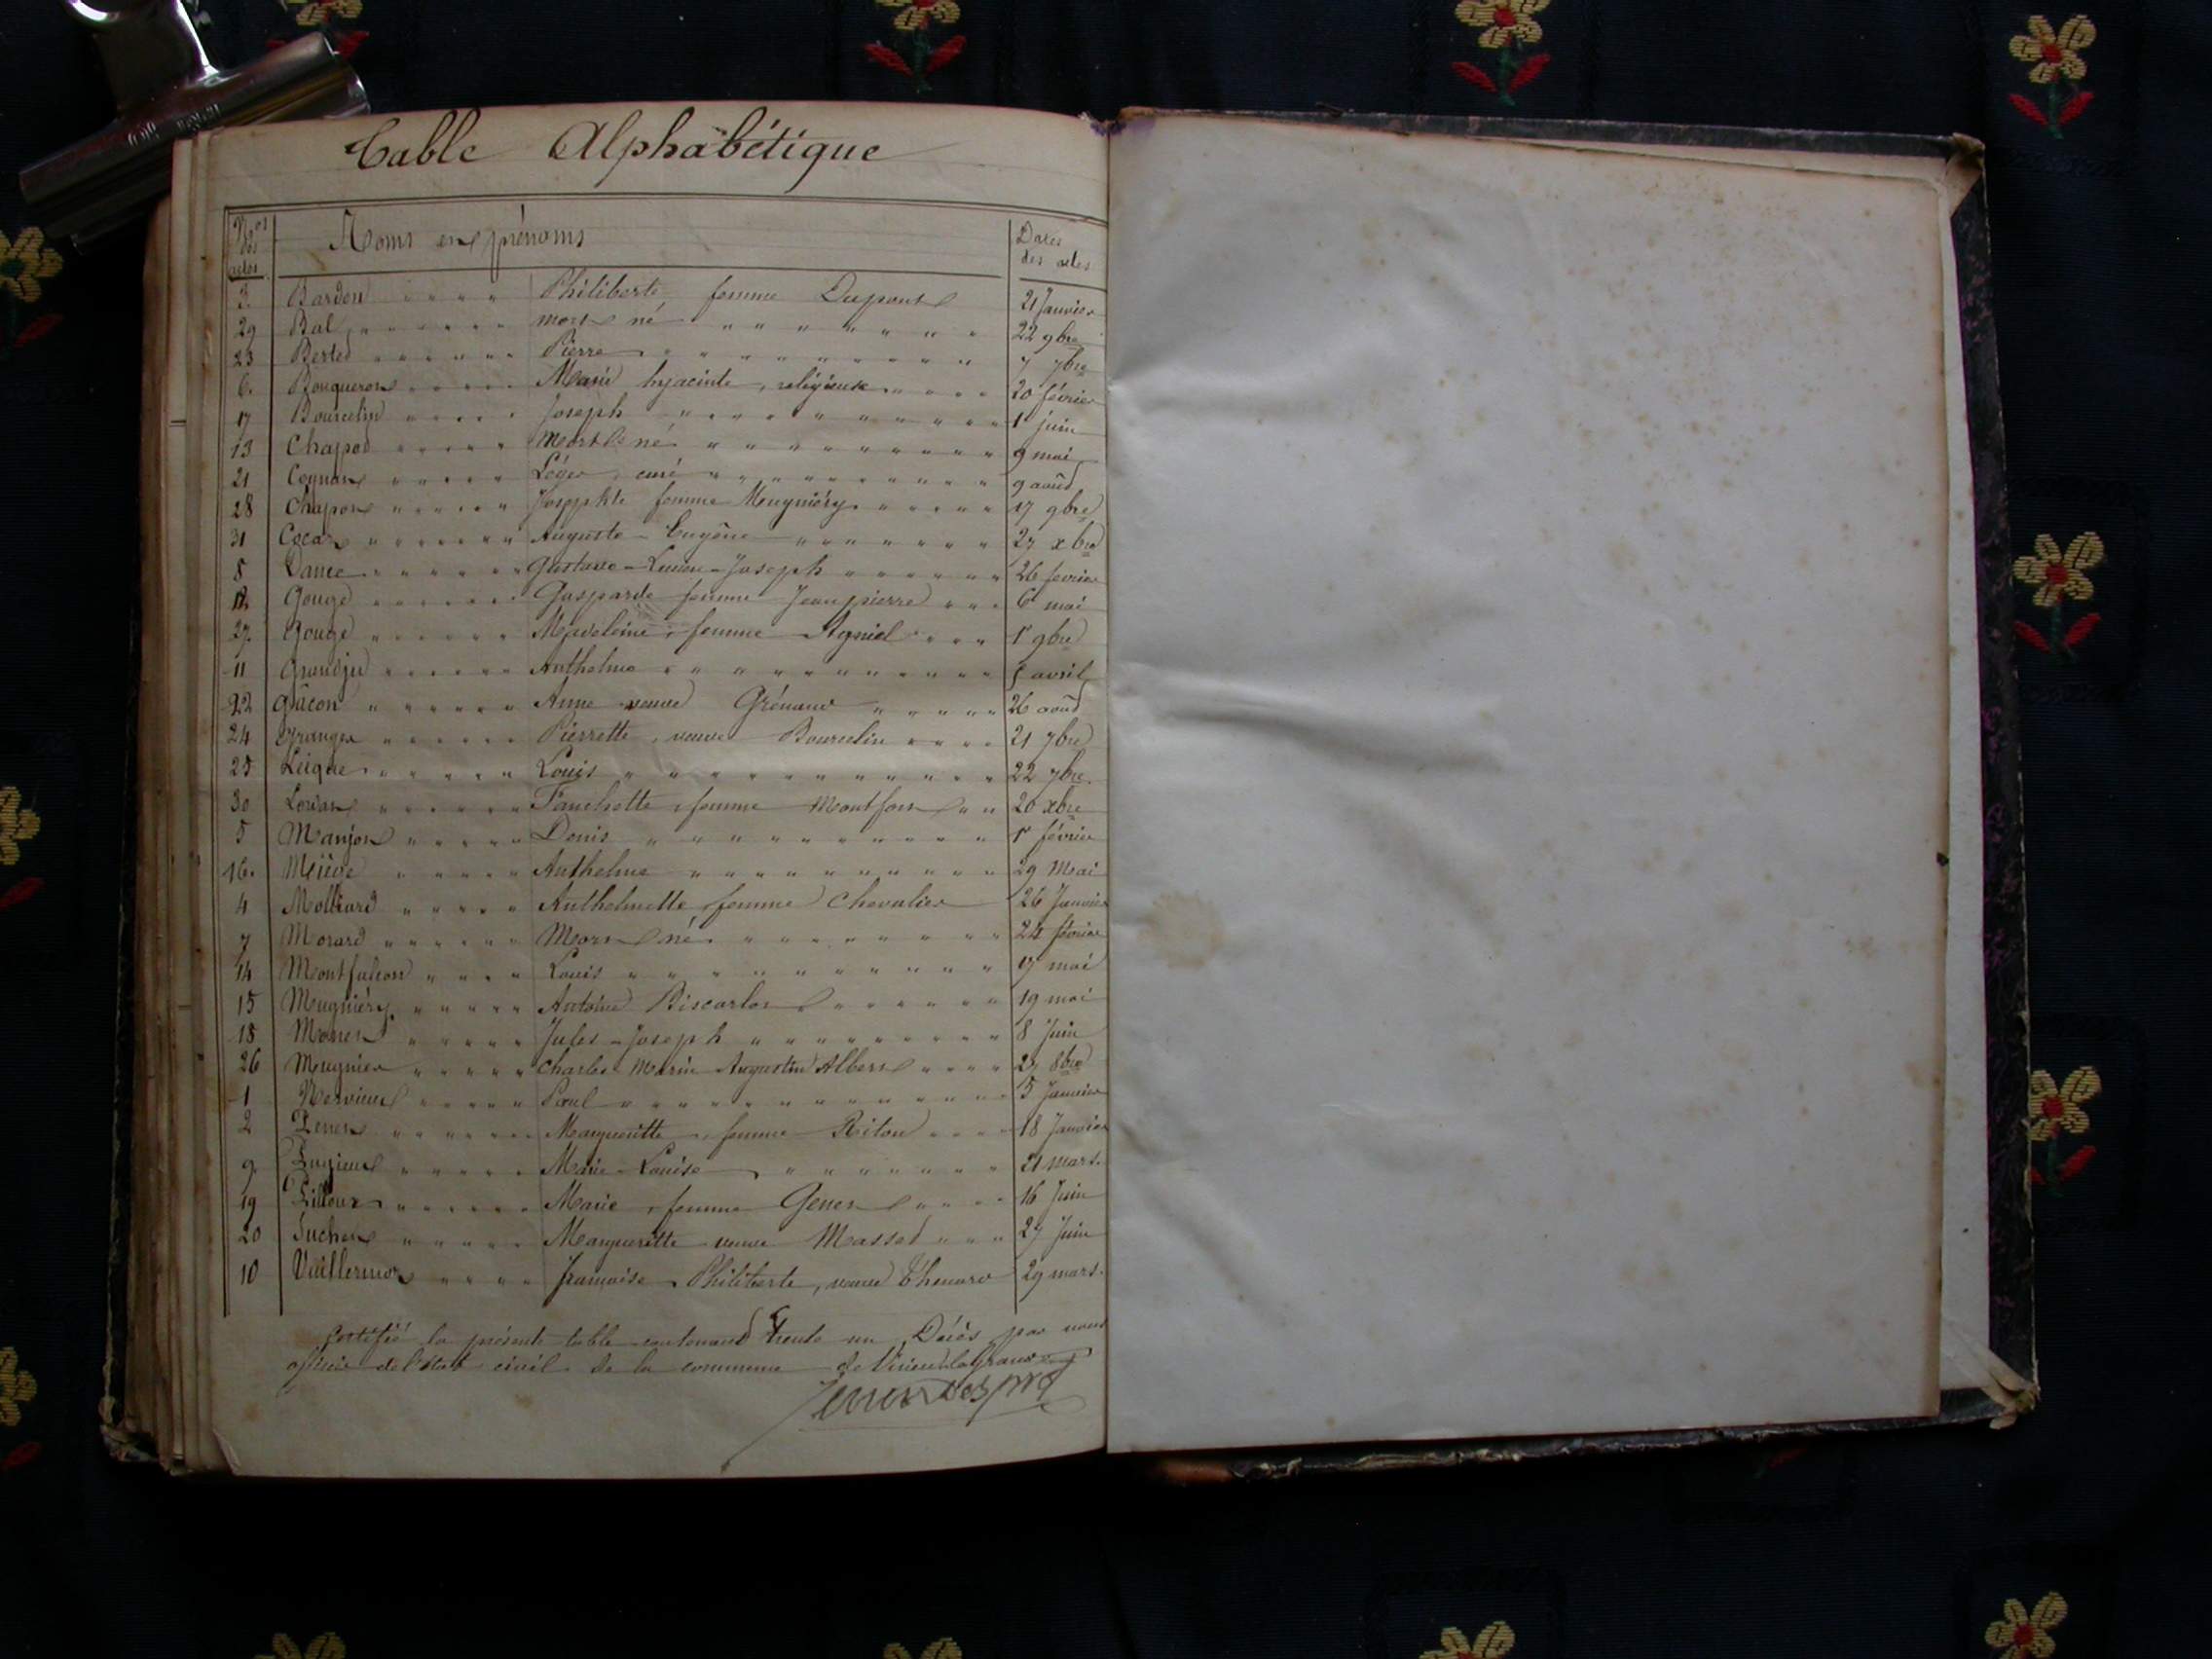 Table Alphabétique
Nos des actes Noms et prénoms Dates des actes
3. Bardon Philiberte, femme Dupont 21 Janvier
29 Bal mort né 22 9bre
23 Bertet Pierre 7 7bre
6. Bouqueron Marie hyacinte, religieuse 20 février
17 Bourcelin Joseph 1 juin
13 Chapot Mort né 9 mai
21 Cognat Léger, curé 9 août
28 Chapon Josephte femme Meugniéry 17 9bre
31 Cocar Auguste - Eugène 27 xbre
8 Dance Gustave - Lucien - Joseph 26 février
12 Gouge Gasparde femme Jeanpierre 6 mai
27. Gouge Madeleine, femme 1 9bre
11 Grandjee Anthelme avril
22 Gâcon Anne veuve Grénard 26 août
24 Granger Pierrette, veuve Bourcelin 21 7bre
25 Louis 22 7bre.
30 Fanchette, femme Montfort 20 xbre
5 Manjot Denis 1 février
16. Miège Anthelme 29 Mai
4 Molliard Anthelmette femme Chevalier 26 Janvier
7 Morard Mort né 24 février
14 Montfalcon Louis 17 mai
15 Mugniéry Antoine Biscarlos 19 mai
18 Monet Jules - Joseph 8 Juin
26 Meugnier Charles Marin Augustin Albert 27 8bre
1 Nervieux Paul 5 Janvier
2 Marguerite, femme Riton 18 Janvier
9. Marie - Louise 21 mars.
19 Marie, femme Genet 16 Juin
20 Suchet Marguerite veuve Masset 27 Juin
10 Vuillermoz françoise Philiberte, veuve Thenard 29 mars.
Certifié la présente table contenant trente un Décès par nous
officier de l'état civil de la commune de Virieu le Grand